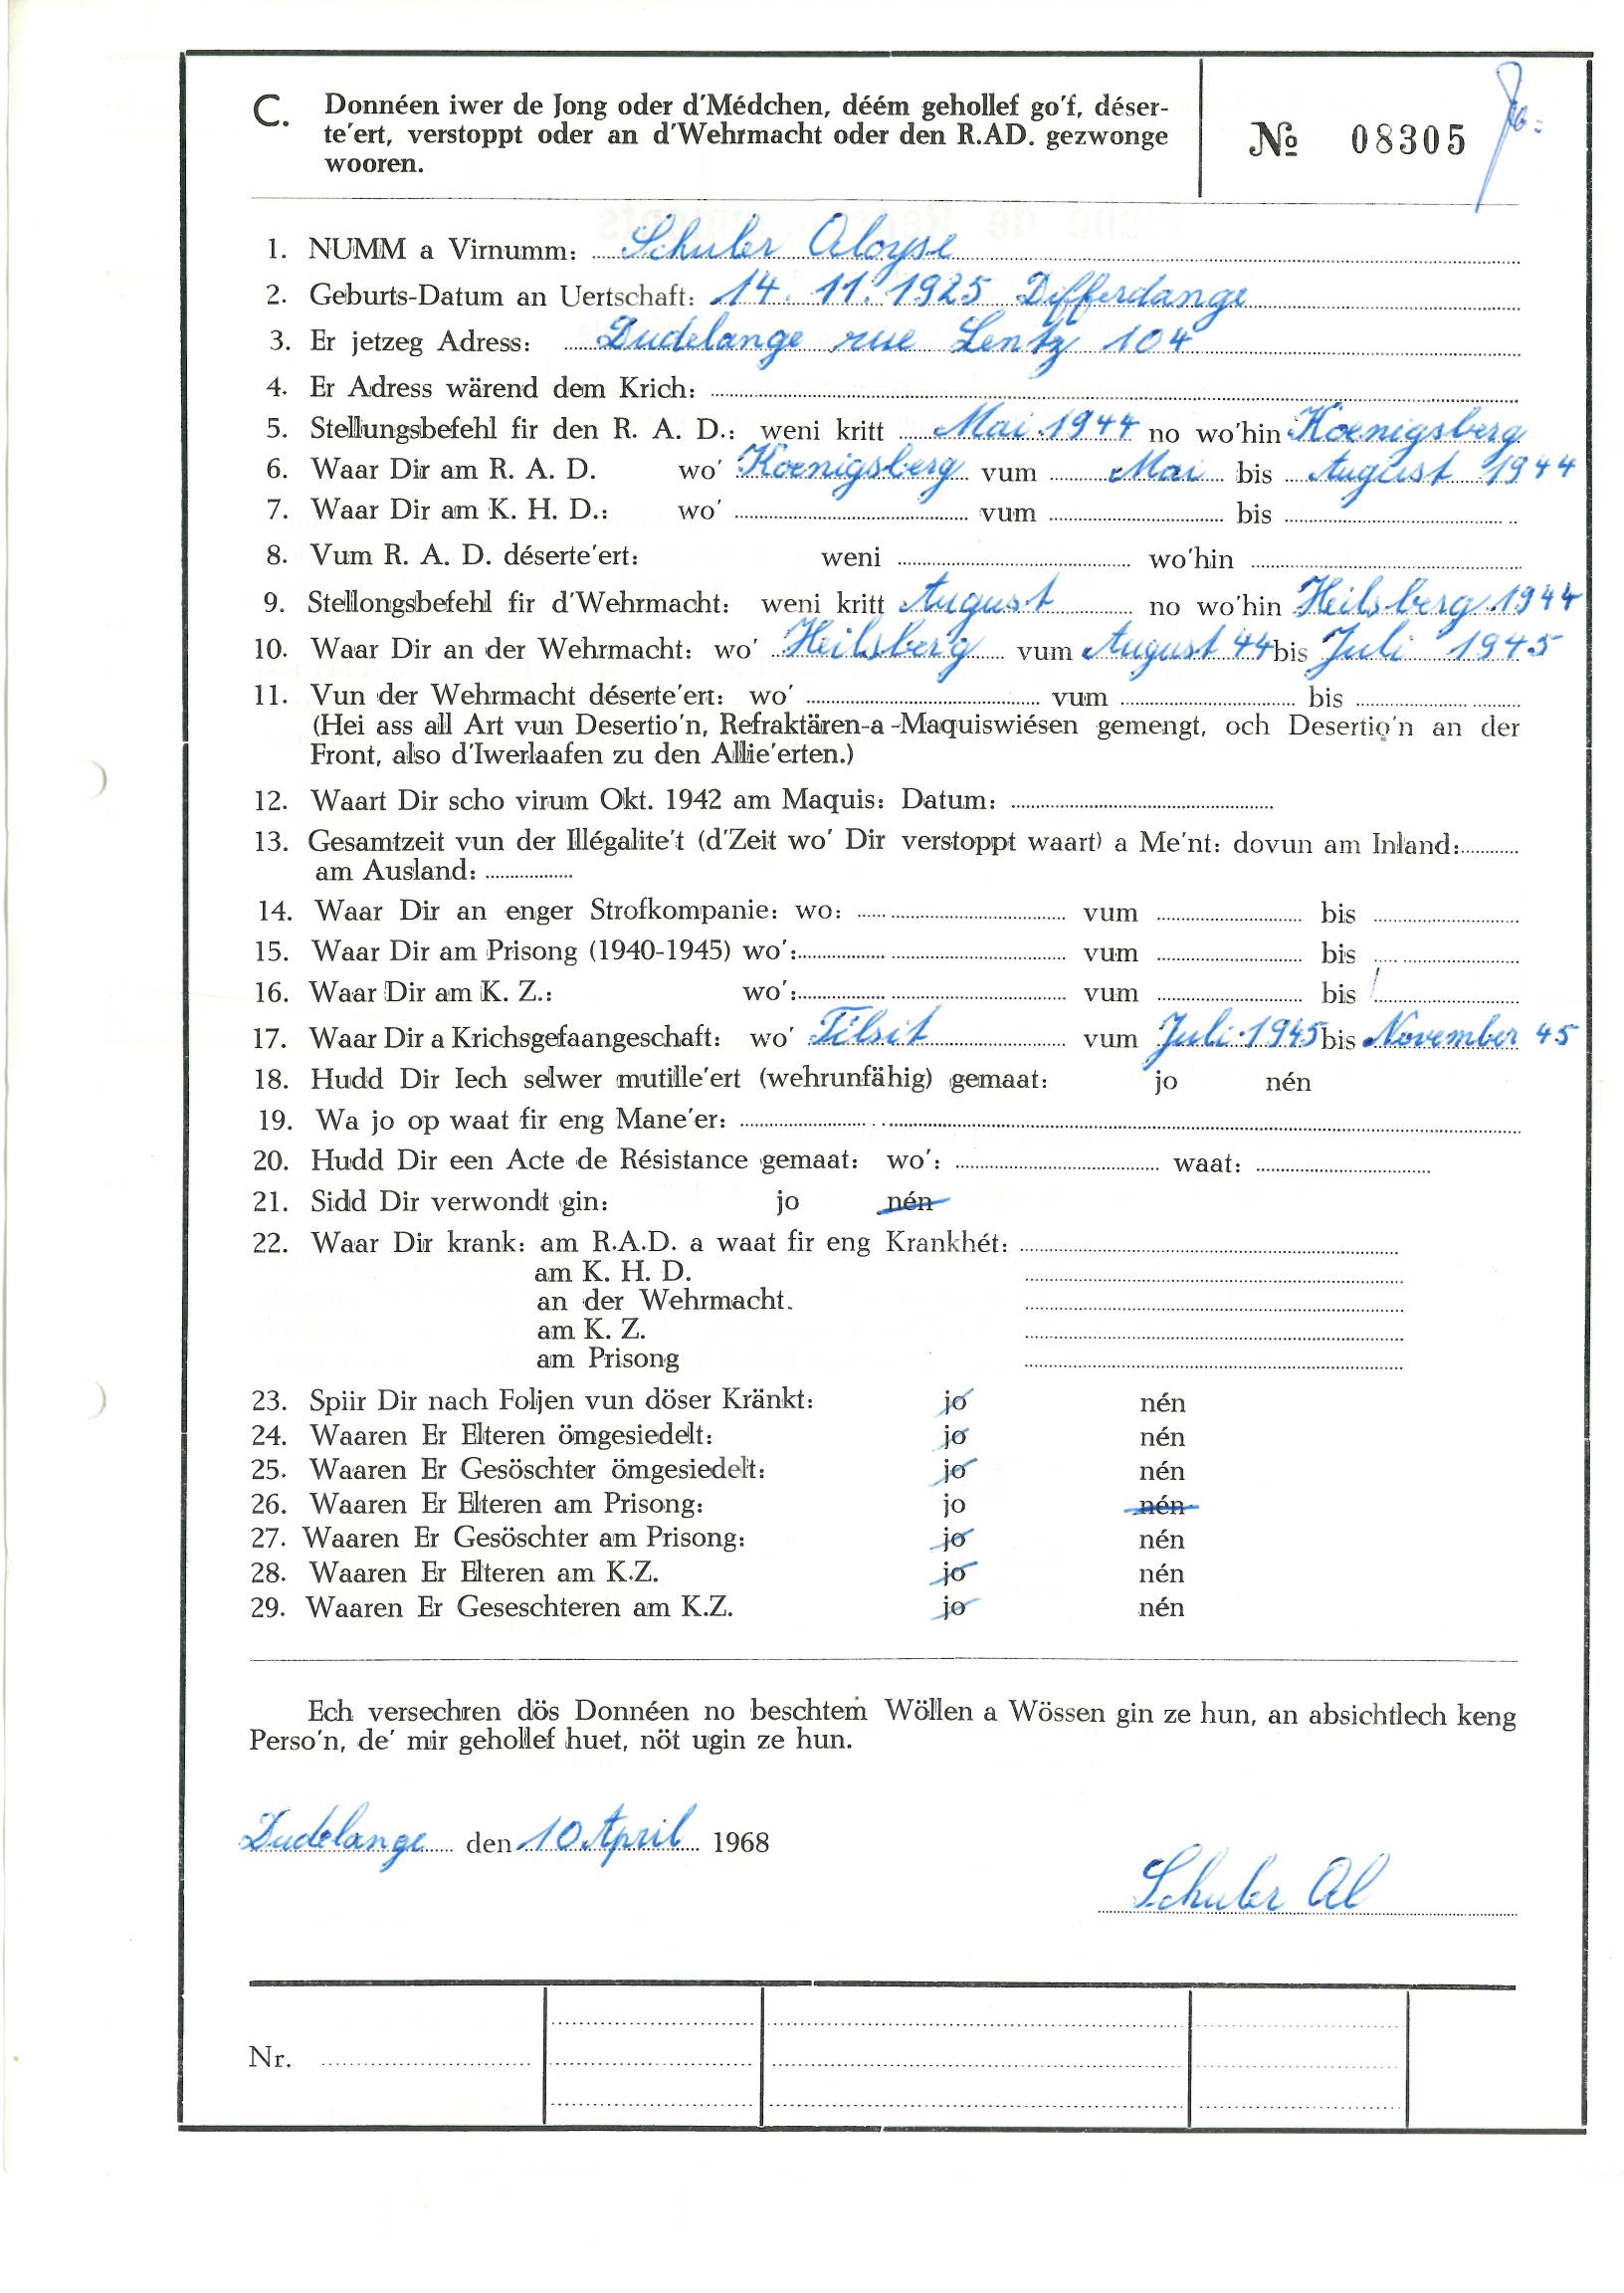 C. Donnéen iwer de Jong oder d'Médchen, déém gehollef go'f, déser-
te'ert, verstoppt oder an d'Wehrmacht oder den R.AD. gezwonge
wooren.
№ 08305
1. NUMM a Virnumm: Schuler Aloyse
2. Geburts-Datum an Uertschaft: 14. 11. 1925 Differdange
3. Er jetzeg Adress: Dudelange rue Lentz 104
4. Er Adress wärend dem Krich:
5. Stellungsbefehl fir den R. A. D.: weni kritt Mai 1944 no wo'hin Koenigsberg
6. Waar Dir am R. A. D. wo' Koenigsberg vum Mai bis August 1944
7. Waar Dir am K. H. D.: wo' vum bis
8. Vum R. A. D. déserte'ert: weni wo'hin
9. Stellongsbefehl fir d'Wehrmacht: weni kritt August no wo'hin Heilsberg 1944
10. Waar Dir an der Wehrmacht: wo' Heilsberg vum August 44 bis Juli 1945
11. Vun der Wehrmacht déserte'ert: wo' vum bis
(Hei ass all Art vun Desertio'n, Refraktären-a-Maquiswiésen gemengt, och Desertio'n an der
Front, also d'Iwerlaafen zu den Allie'erten.)
12. Waart Dir scho virum Okt. 1942 am Maquis: Datum:
13. Gesamtzeit vun der Illégalite't (d'Zeit wo' Dir verstoppt waart) a Me'nt: dovun am Inland:
am Ausland:
14. Waar Dir an enger Strofkompanie: wo: vum bis
15. Waar Dir am Prisong (1940-1945) wo': vum bis
16. Waar Dir am K. Z.: wo': vum bis
17. Waar Dir a Krichsgefaangeschaft: wo' Tilsit vum Juli 1945 bis November 45
18. Hudd Dir Iech selwer mutille'ert (wehrunfähig) gemaat: jo nén
19. Wa jo op waat fir eng Mane'er:
20. Hudd Dir een Acte de Résistance gemaat: wo': waat:
21. Sidd Dir verwondt gin: jo nén
22. Waar Dir krank: am R.A.D. a waat fir eng Krankhét:
am K. H. D.
an der Wehrmacht.
am K. Z.
am Prisong
23. Spiir Dir nach Foljen vun döser Kränkt: jo nén
24. Waaren Er Elteren ömgesiedelt: jo nén
25. Waaren Er Gesöschter ömgesiedelt: jo nén
26. Waaren Er Elteren am Prisong: jo nén
27. Waaren Er Gesöschter am Prisong: jo nén
28. Waaren Er Elteren am K.Z. jo nén
29. Waaren Er Geseschteren am K.Z. jo nén
Ech versechren dös Donnéen no beschtem Wöllen a Wössen gin ze hun, an absichtlech keng
Perso'n, de' mir gehollef huet, nöt ugin ze hun.
Dudelange den 10 April 1968
Schuler Al
Nr.